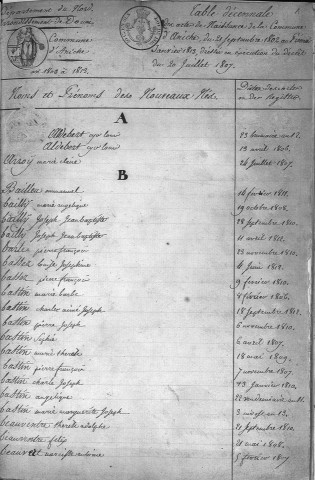 Département du Nord.
Arrondissement de Douai.
Commune
d'Aniche
an 1802 à 1813.
Table décennale
Des actes de Naissance de la Commune
d'Aniche, du 20 septembre 1802 au premier
Janvier 1813, dressée en exécution du décret
du 20 Juillet 1807.
Noms et Prénoms des Nouveaux Nés.
Dates des actes
sur des Registres
A
Aldebert
Aldebert
13 avril 1806.
Arroy marie claire
26 Juillet 1807.
B
Bailleu emmanuel
16 février 1811.
bailly marie angelique
19 octobre 1808.
bailly Joseph Jean baptiste
28 septembre 1810.
bailly Joseph Jean baptiste
11 avril 1812.
barle pierre françois
23 novembre 1810.
ballez louise Josephine
4 Juin 1812.
pierre françois
9 février 1810.
bastin marie barbe
8 février 1806.
bastin charles aimé Joseph
18 septembre 1812.
bastin pierre Joseph
5 novembre 1810.
bastin Sophie
6 avril 1807.
bastin marie therese
18 mai 1809.
bastin pierre françois
7 novembre 1807.
bastin charle Joseph
23 Janvier 1810.
bastin angelique
22 vendemiaire an 14.
bastin marie marguerite Joseph
beauventre therese adolphe
21 Septembre 1810.
beauventre felix
21 mai 1808.
beauvent narcisse antoine
8 février 1807